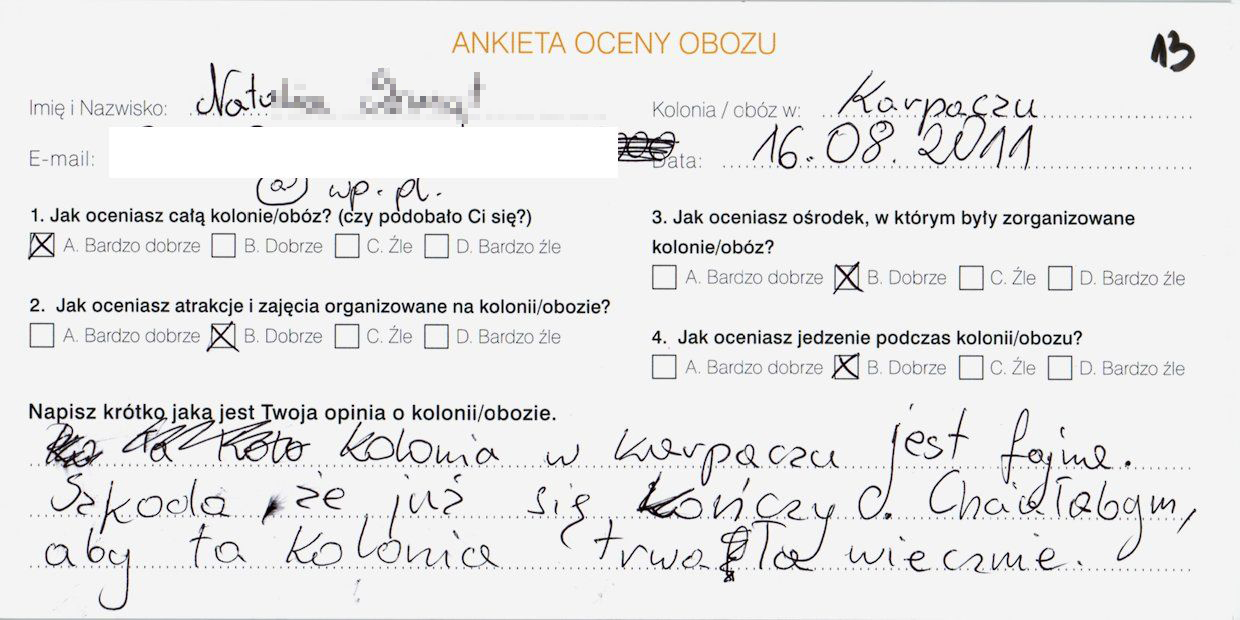 ANKIETA OCENY OBOZU
13
Imię i Nazwisko:
Kolonia / obóz w: Karpaczu
E-mail:
Data: 16.08.2011
@ wp.pl.
1. Jak oceniasz całą kolonie/obóz? (czy podobało Ci się?)
A. Bardzo dobrze B. Dobrze C. Źle D. Bardzo źle
2. Jak oceniasz atrakcje i zajęcia organizowane na kolonii/obozie?
A. Bardzo dobrze B. Dobrze C. Źle D. Bardzo źle
3. Jak oceniasz ośrodek, w którym były zorganizowane
kolonie/obóz?
A. Bardzo dobrze B. Dobrze C. Źle D. Bardzo źle
4. Jak oceniasz jedzenie podczas kolonii/obozu?
A. Bardzo dobrze B. Dobrze C. Źle D. Bardzo źle
Napisz krótko jaka jest Twoja opinia o kolonii/obozie.
Kolonia w Karpaczu jest fajna.
Szkoda, że już się kończy. Chciałabym,
aby ta kolonia trwała wiecznie.